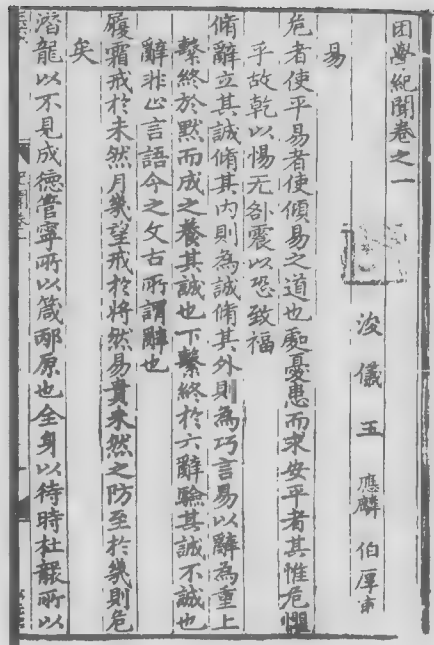 困學紀聞卷之一
浚儀王應麟伯厚甫
易
危者使平易者使傾易之道也處憂患而求安平者其惟危懼
乎故乾以惕无咎震以恐致福
脩辭立其誠脩其内則為誠脩其外則為巧言易以辭為重上
繫終於默而成之養其誠也下繫終於六辭驗其誠不誠也
辭非止言語今之文古所謂辭也
履霜戒於未然月幾望戒於將然易貴未然之防至於幾則危
矣
潛龍以不見成德管寧所以箴邴原也全身以待時杜襲所以